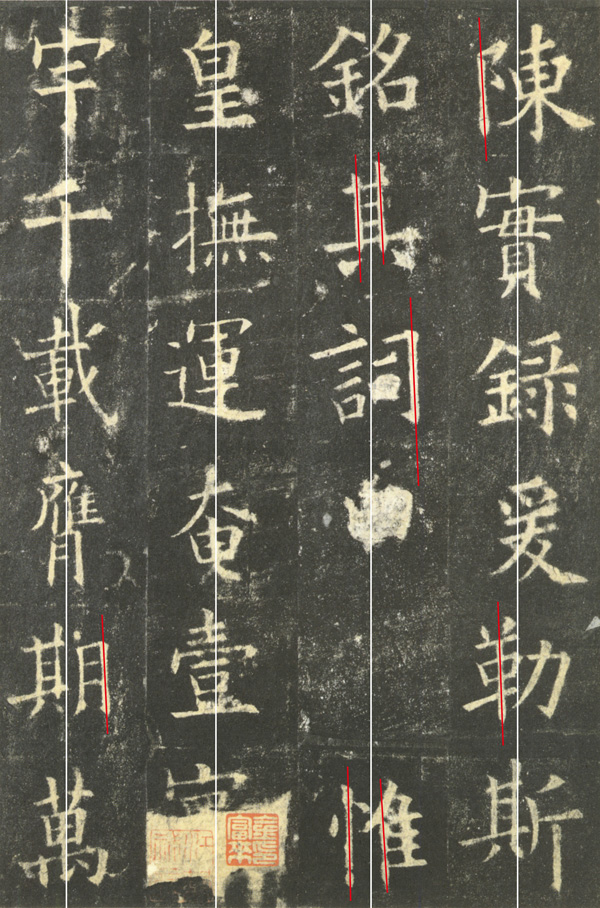 陳實錄爰勒斯
銘其詞曰惟
皇撫運奄壹
宇千載膺期萬